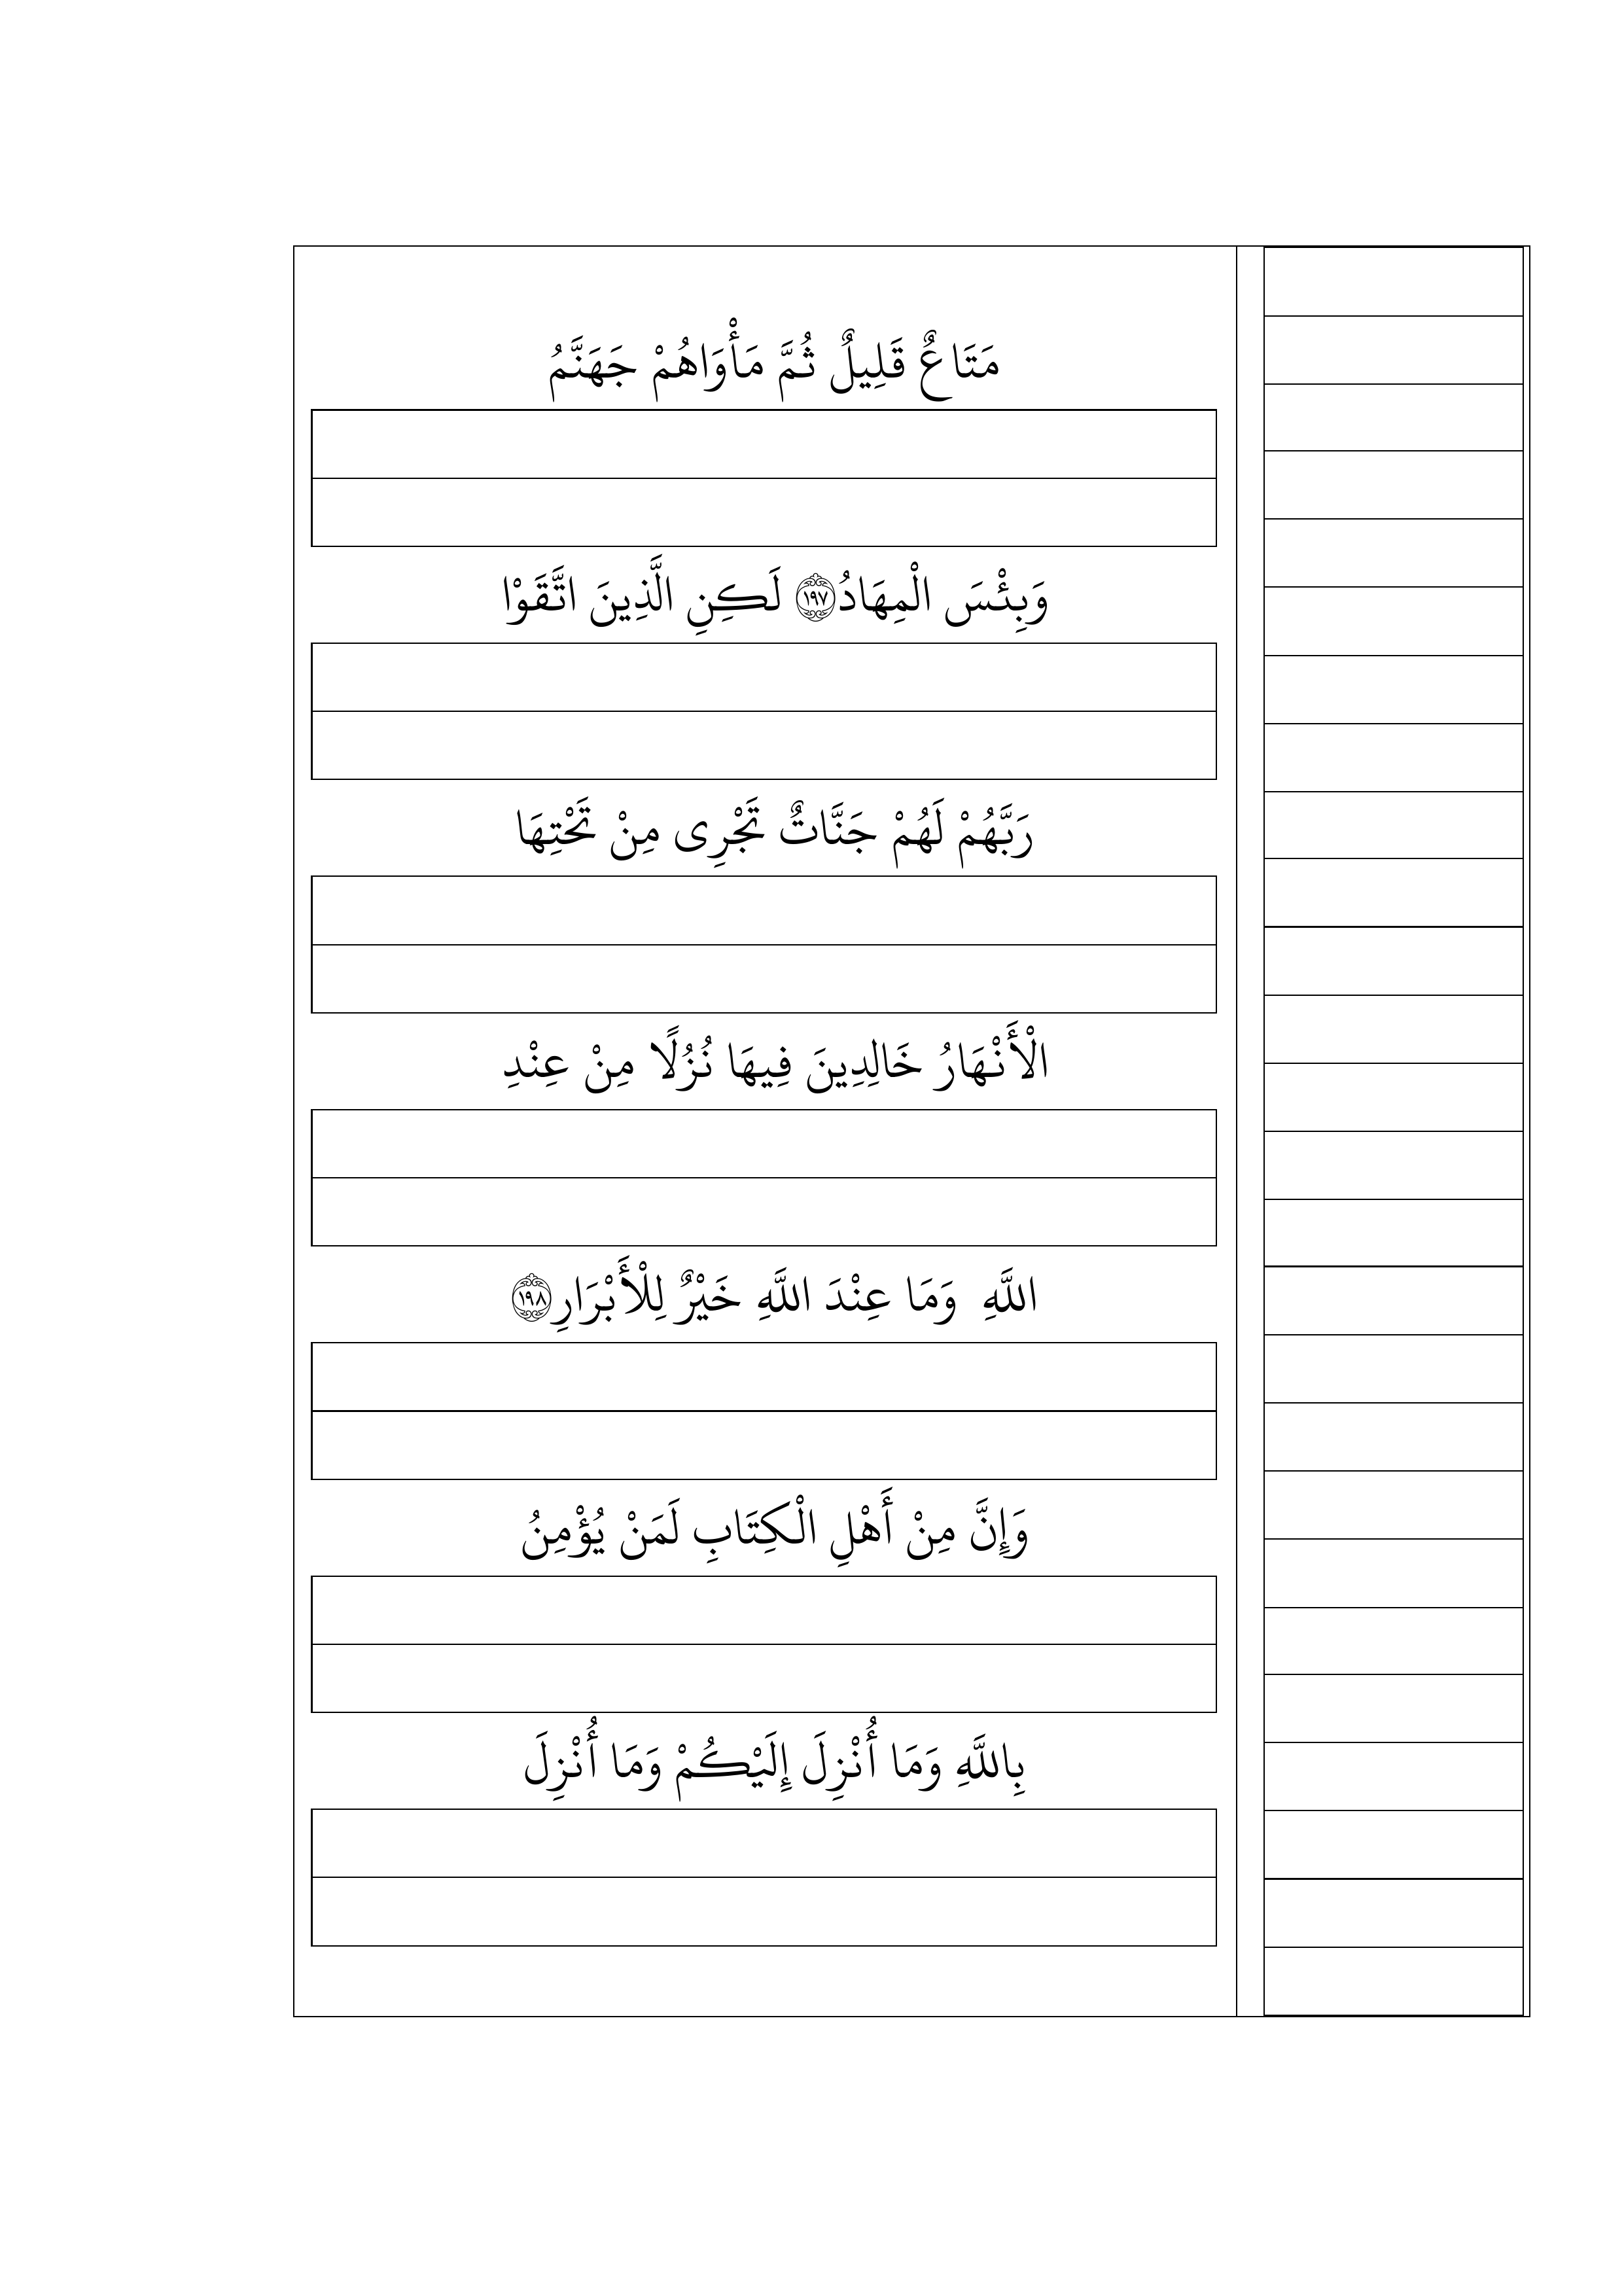 مَتَاعٌ قَلِيلٌ ثُمَّ مَأْوَاهُمْ جَهَنَّمُ
وَبِئْسَ الْمِهَادُ ﴿١٩٧﴾ لَكِنِ الَّذِينَ اتَّقَوْا
رَبَّهُمْ لَهُمْ جَنَّاتٌ تَجْرِى مِنْ تَحْتِهَا
الْأَنْهَارُ خَالِدِينَ فِيهَا نُزُلًا مِنْ عِنْدِ
اللَّهِ وَمَا عِنْدَ اللَّهِ خَيْرٌ لِلْأَبْرَارِ ﴿١٩٨﴾
وَإِنَّ مِنْ أَهْلِ الْكِتَابِ لَمَنْ يُؤْمِنُ
بِاللَّهِ وَمَا أُنْزِلَ إِلَيْكُمْ وَمَا أُنْزِلَ